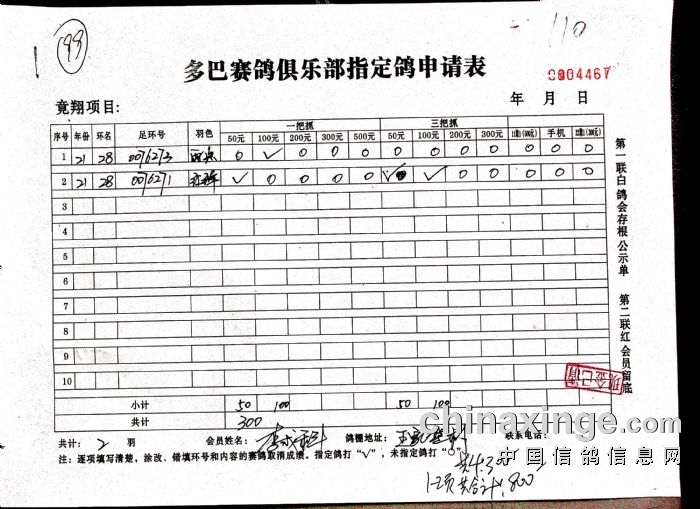 199
110
多巴赛鸽俱乐部指定鸽申请表
0004467
竟翔项目:
年 月 日
序号 年份 环名 足环号 羽色 一把抓 三把抓
50元 100元 200元 300元 500元 50元 100元 200元 300元 手机
1 21 28 0076273 0 ✓ 0 0 0 0 0 0 0 0 0 0
2 21 28 0076271 ✓ 0 0 0 0 ✓ ✓ 0 0 0 0 0
3
4
5
6
7
8
9
10
小计 50 100 50 100
共计 300
共计: 2 羽 会员姓名: 鸽棚地址: 联系电话:
注:逐项填写清楚,涂改、错填环号和内容的赛鸽取消成绩。指定鸽打“✓”,未指定鸽打“○”。
第一联白鸽会存根公示单 第二联红会员留底
现金已清
chinaxinge.com
中国信鸽信息网
共合计1800